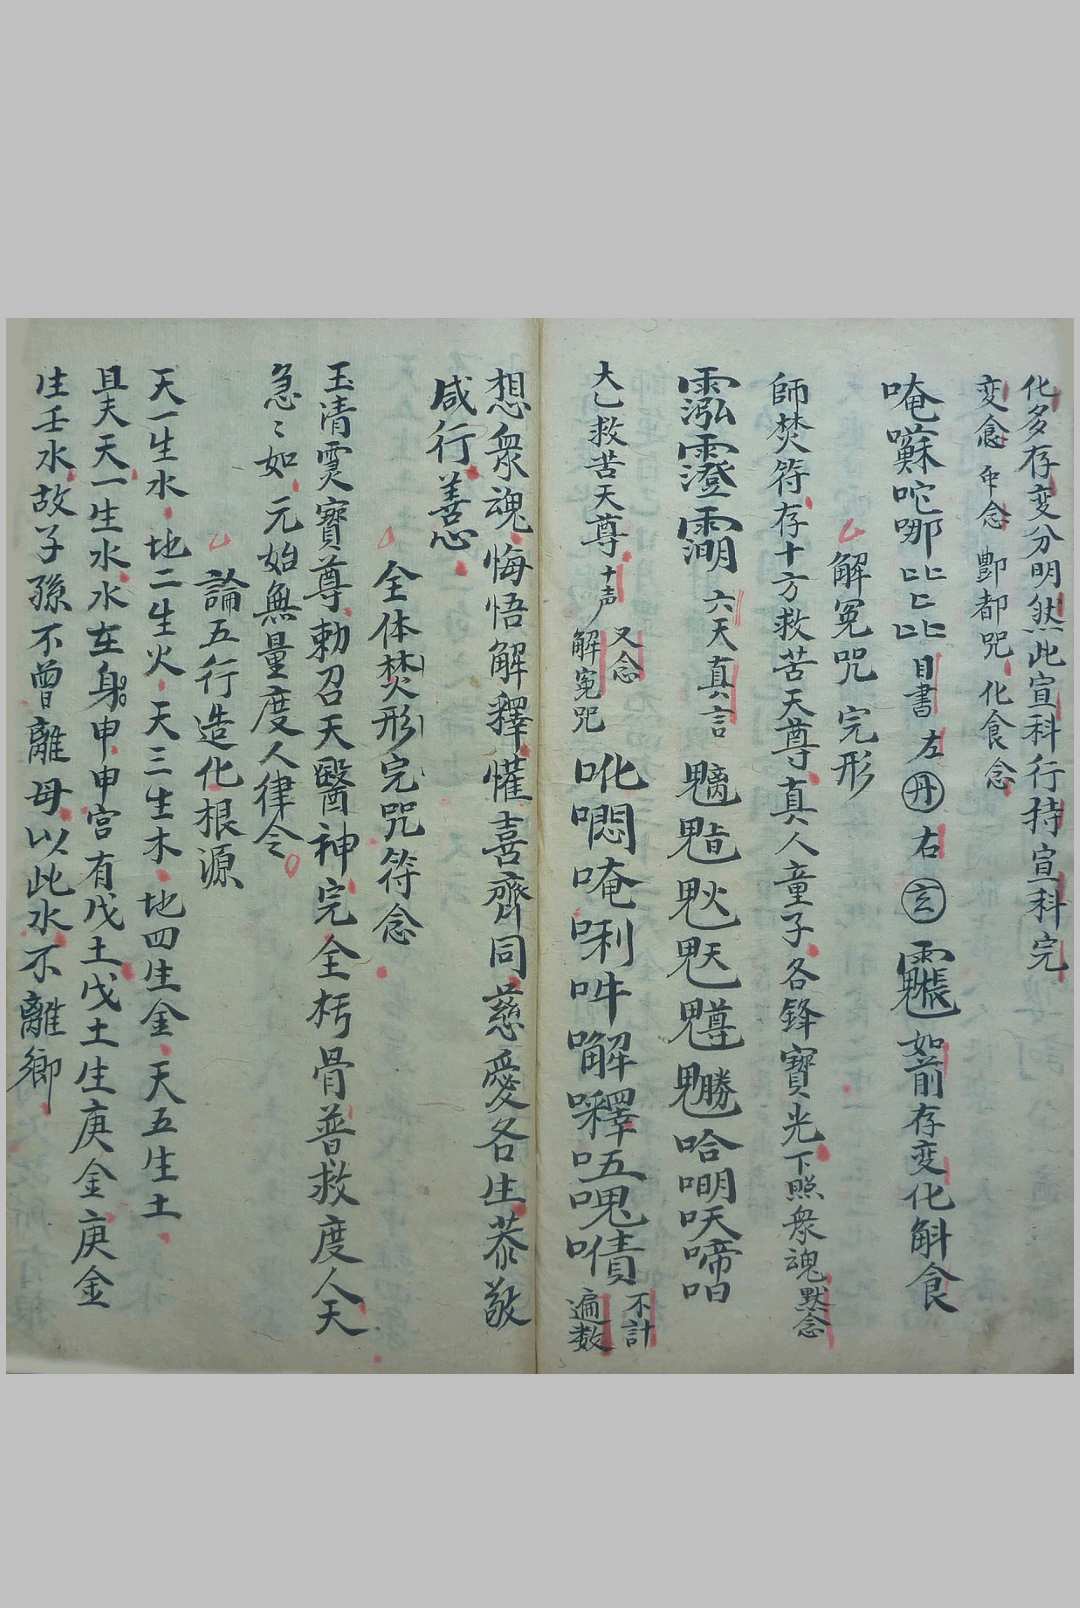 化多存变分明然此宣科行持宣科完
变念 中念 酆都咒 化食念
唵囌陀哪吡叱吡 目書 左丹右玄 如前存变化斛食
解冤咒 完形
師焚符存十方救苦天尊真人童子各鋒寶光下照衆魂默念
六天真言 哈明呋啼唱
太乙救苦天尊十声 又念解冤咒 吪 唵唎吽 不計遍数
想衆魂悔悟解釋懽喜齊同慈愛各生恭敬
咸行善心
全体焚形完咒符念
玉清霊寶尊勅召天醫神完全朽骨普救度人天
急〻如元始無量度人律令
論五行造化根源
天一生水地二生火天三生木地四生金天五生土
且夫天一生水水在身申申宫有戊土戊土生庚金庚金
生壬水故子孫不曾離母以此水不離鄉